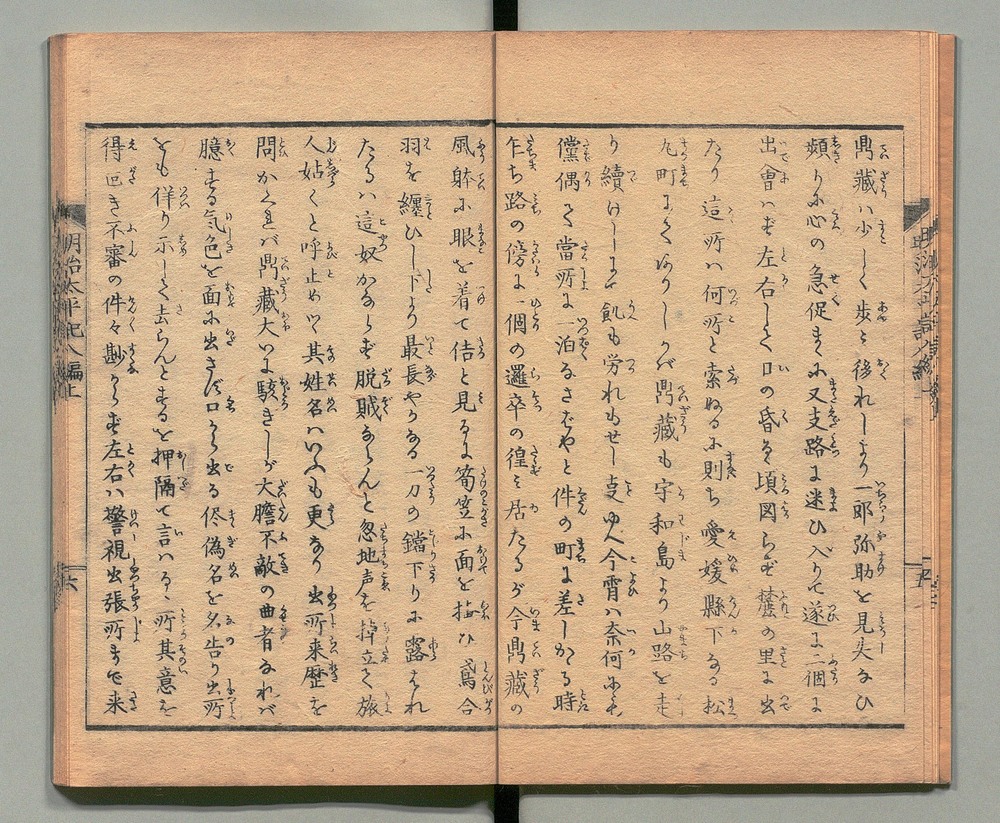 鼎藏ハ少しく歩ミ後れしより一郎弥助を見失なひ
頻りに心の急促まゝに又支路に迷ひ入りて遂に二個に
出會ハず左右して日の昏る頃図らず麓の里に出
たり這所ハ何所と索ぬるに則ち愛媛縣下なる松
丸町にてありしかバ鼎藏も宇和島より山路を走
り續けしまて飢も労れもせし支ゆへ今宵ハ奈何にせん
儻偶を當所に一泊るさばやと件の町に差しかゝる時
乍ち路の傍に一個の邏卒の徨ミ居たるが今鼎藏の
風躰に眼を着て佶と見るに筍笠に面を掩ひ鳶合
羽を纏ひし下より最長やかなる一刀の鐺下りに露はれ
たるハ這奴かならず脱賊ならんと忽地声を掉立て旅
人姑くと呼止めツヽ其姓名ハいふも更なり出所来歴を
問かくれバ鼎藏大いに駭きしが大膽不敵の曲者なれバ
臆する気色を面に出さず口から出る侭偽名を名告り出所
をも佯り示して去らんとするを押隔て言ハるゝ所其意を
得回き不審の件々尠からず左右ハ警視出張所まで来
明治太平記八編上
六
五